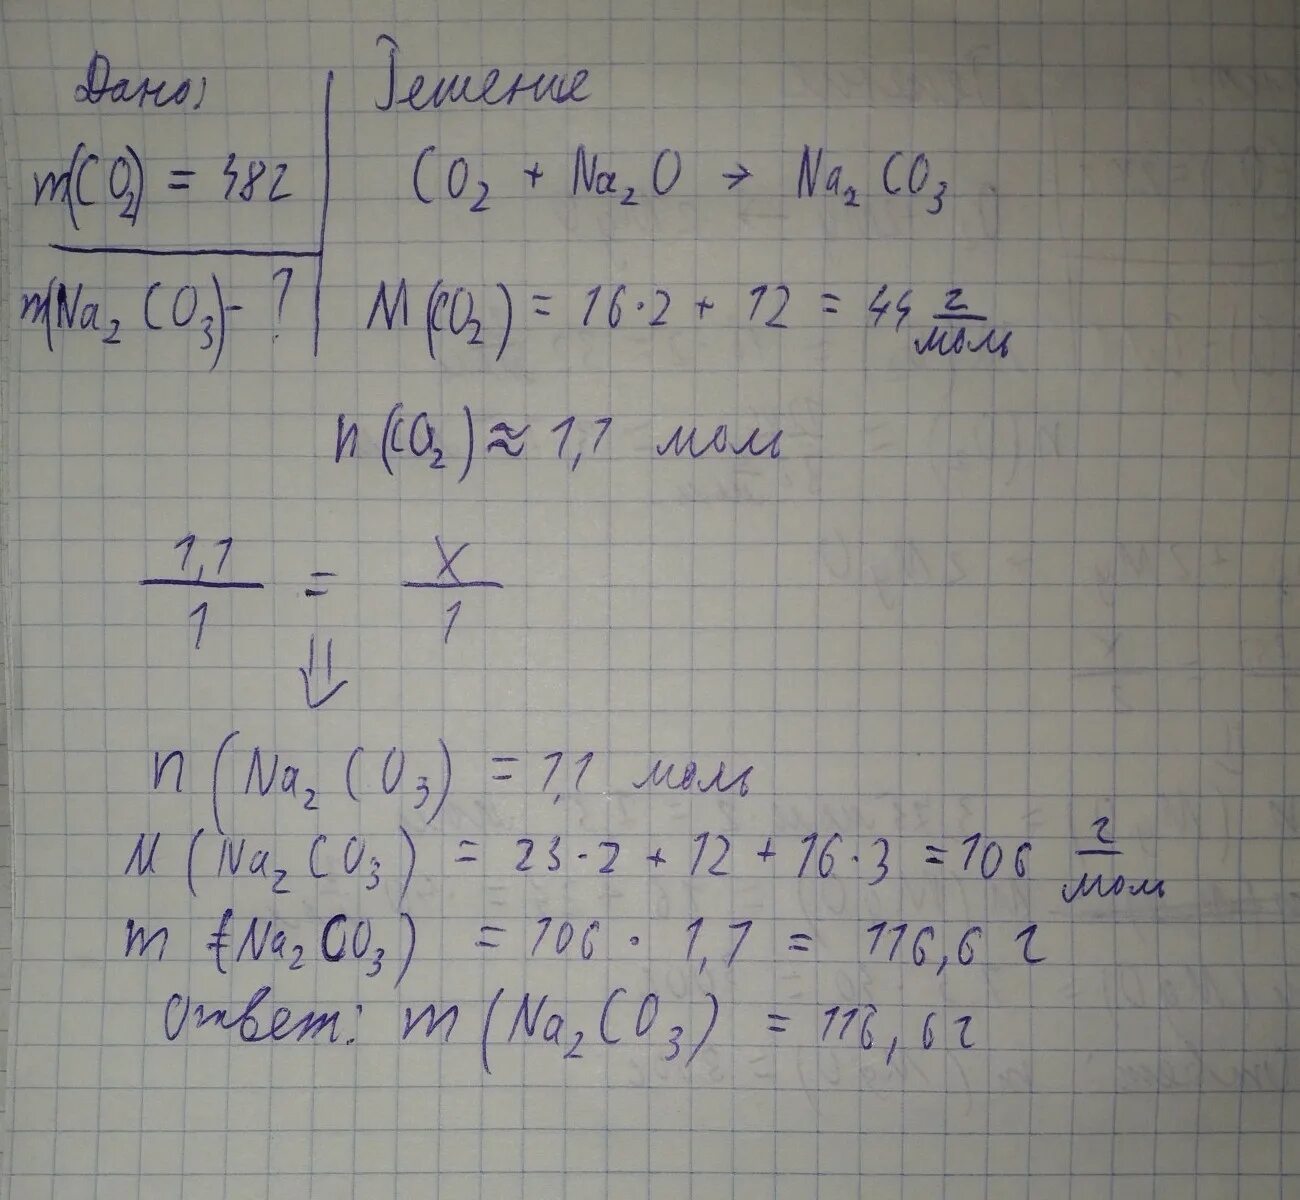 Дано:
m(CO₂) = 48г
m(Na₂CO₃) - ?
Решение
CO₂ + Na₂O → Na₂CO₃
M(CO₂) = 16·2 + 12 = 44 г/моль
n(CO₂) ≈ 1,1 моль
1,1/1 = x/1
⇓
n(Na₂CO₃) = 1,1 моль
M(Na₂CO₃) = 23·2 + 12 + 16·3 = 106 г/моль
m(Na₂CO₃) = 106 · 1,1 = 116,6 г
Ответ: m(Na₂CO₃) = 116,6г